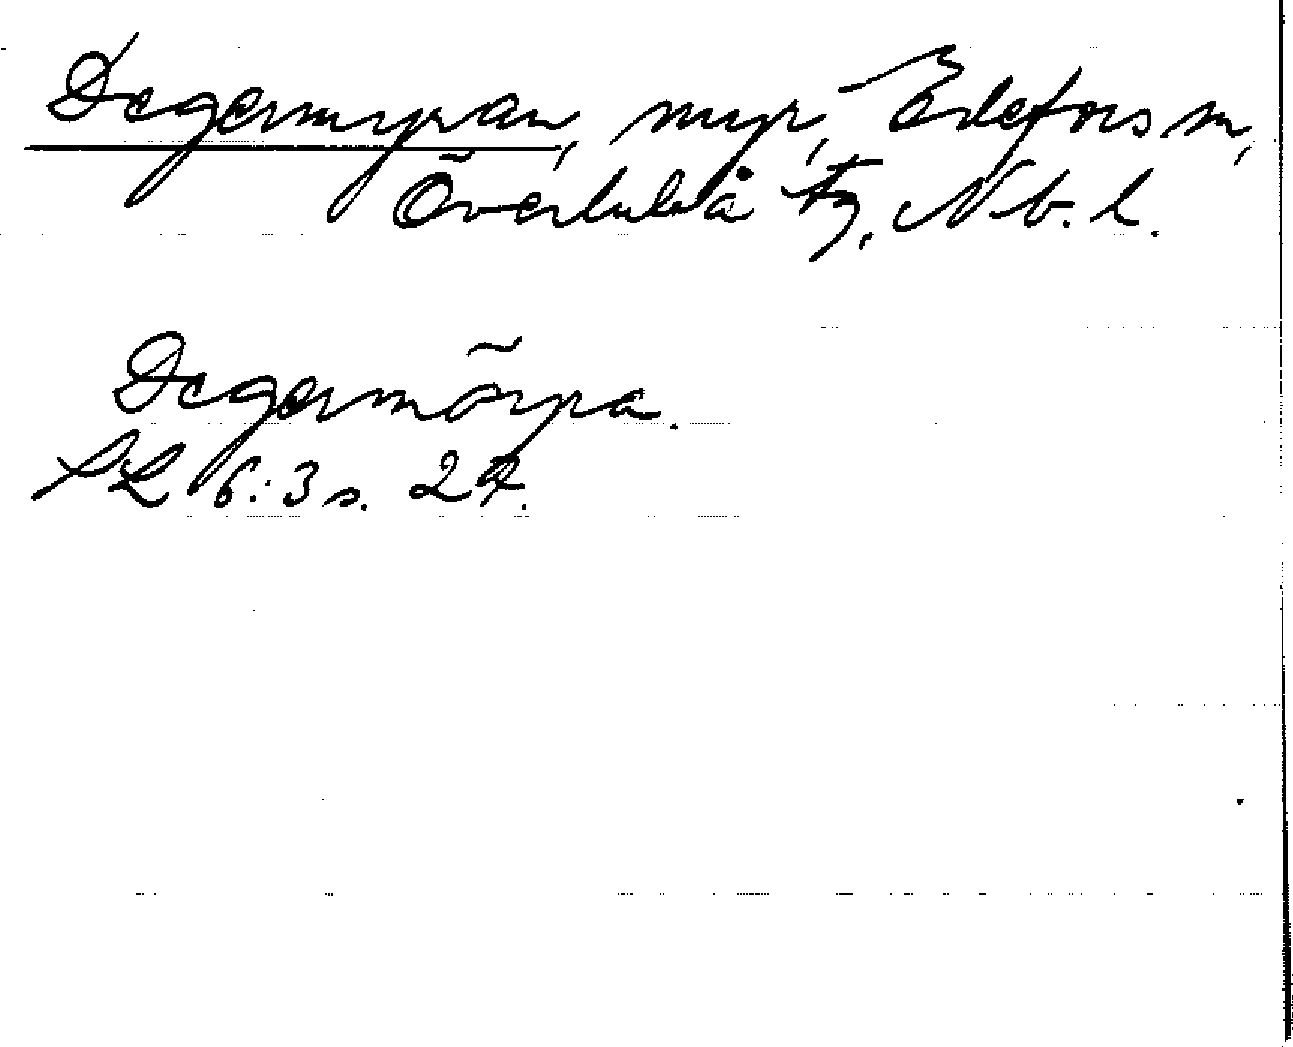 Degermyran, myr, Edefors sn,
Överluleå tg, Nb. l.
Degermöyra.
SL 6:3 s. 27.